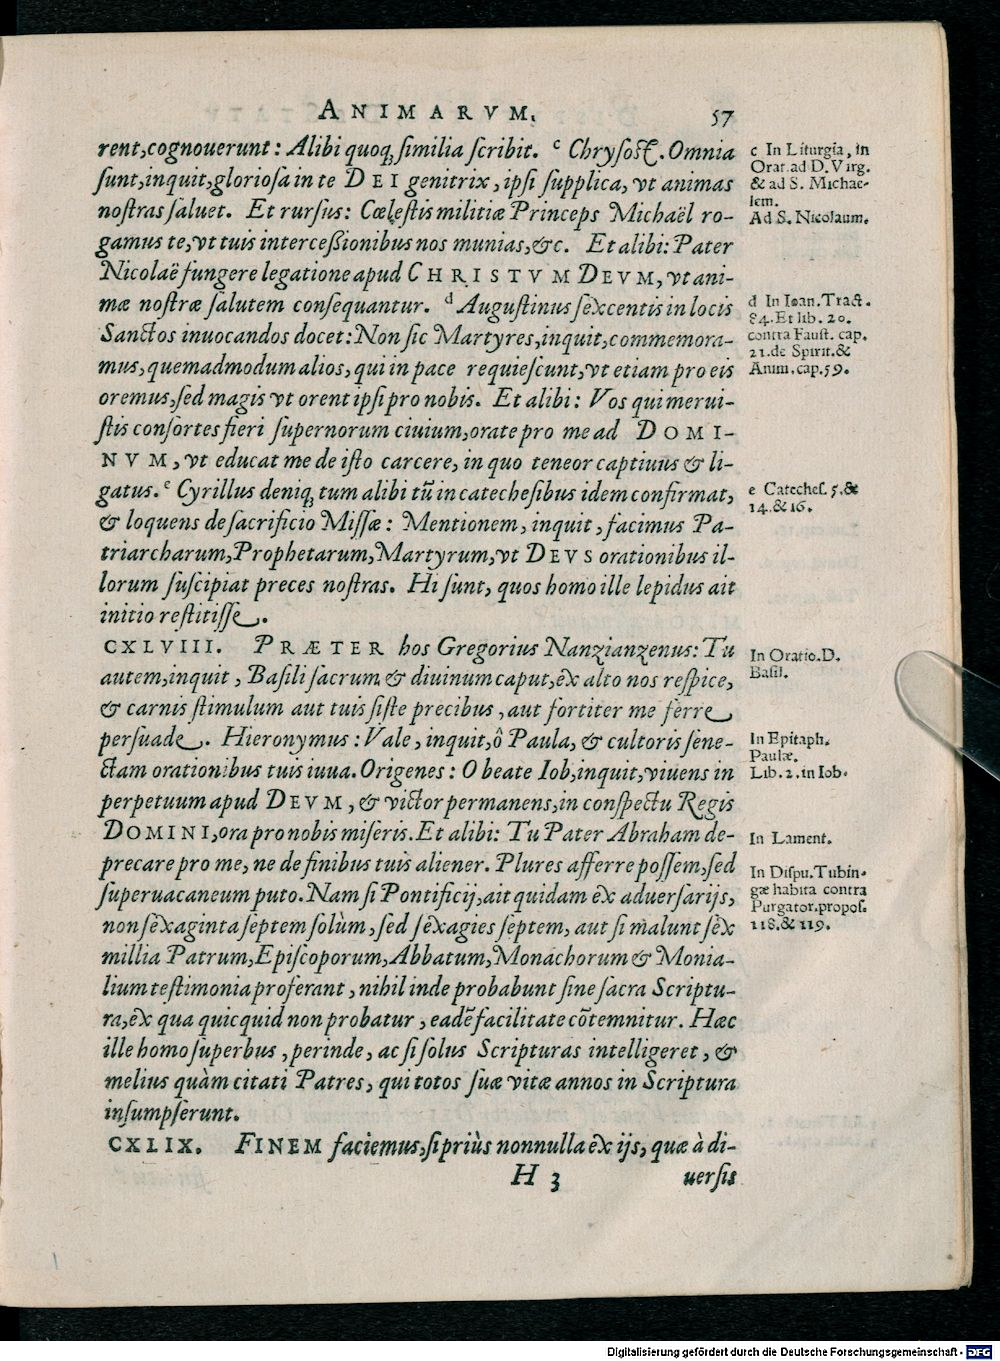 ANIMARVM.
57
rent,cognouerunt: Alibi quoq; similia scribit. c Chrysost. Omnia
sunt,inquit,gloriosa in te DEI genitrix, ipsi supplica, vt animas
nostras saluet. Et rursus: Cœlestis militiæ Princeps Michaël ro-
gamus te, vt tuis intercessionibus nos munias,&c. Et alibi: Pater
Nicolaë fungere legatione apud CHRISTVM DEVM, vt ani-
mæ nostræ salutem consequantur. d Augustinus sexcentis in locis
Sanctos inuocandos docet: Non sic Martyres,inquit,commemora-
mus, quemadmodum alios, qui in pace requiescunt, vt etiam pro eis
oremus, sed magis vt orent ipsi pro nobis. Et alibi: Vos qui merui-
stis consortes fieri supernorum ciuium, orate pro me ad DOMI-
NVM, vt educat me de isto carcere, in quo teneor captiuus & li-
gatus. e Cyrillus deniq; tum alibi tũ in catechesibus idem confirmat,
& loquens de sacrificio Missæ: Mentionem, inquit, facimus Pa-
triarcharum, Prophetarum, Martyrum, vt DEVS orationibus il-
lorum suscipiat preces nostras. Hi sunt, quos homo ille lepidus ait
initio restitisse.
CXLVIII. PRÆTER hos Gregorius Nanzianzenus: Tu
autem,inquit, Basili sacrum & diuinum caput, ex alto nos respice,
& carnis stimulum aut tuis siste precibus, aut fortiter me ferre
persuade. Hieronymus: Vale, inquit, ô Paula, & cultoris sene-
ctam orationibus tuis iuua. Origenes: O beate Iob, inquit, viuens in
perpetuum apud DEVM, & victor permanens, in conspectu Regis
DOMINI, ora pro nobis miseris. Et alibi: Tu Pater Abraham de-
precare pro me, ne de finibus tuis aliener. Plures afferre possem, sed
superuacaneum puto. Nam si Pontificij, ait quidam ex aduersarijs,
non sexaginta septem solùm, sed sexagies septem, aut si malunt sex
millia Patrum, Episcoporum, Abbatum, Monachorum & Monia-
lium testimonia proferant, nihil inde probabunt sine sacra Scriptu-
ra, ex qua quicquid non probatur, eadẽ facilitate cõtemnitur. Hæc
ille homo superbus, perinde, ac si solus Scripturas intelligeret, &
melius quàm citati Patres, qui totos suæ vitæ annos in Scriptura
insumpserunt.
CXLIX. FINEM faciemus, si priùs nonnulla ex ijs, quæ à di-
H 3 uersis
c In Liturgia, in
Orat. ad D. Virg.
& ad S. Michae-
lem.
Ad S. Nicolaum.
d In Ioan. Tract.
84. Et lib. 20.
contra Faust. cap.
21. de Spirit. &
Anim. cap. 59.
e Cateches. 5. &
14. & 16.
In Oratio. D.
Basil.
In Epitaph.
Paulæ.
Lib. 2. in Iob.
In Lament.
In Dispu. Tubin-
gæ habita contra
Purgator. propos.
118. & 119.
Digitalisierung gefördert durch die Deutsche Forschungsgemeinschaft - DFG